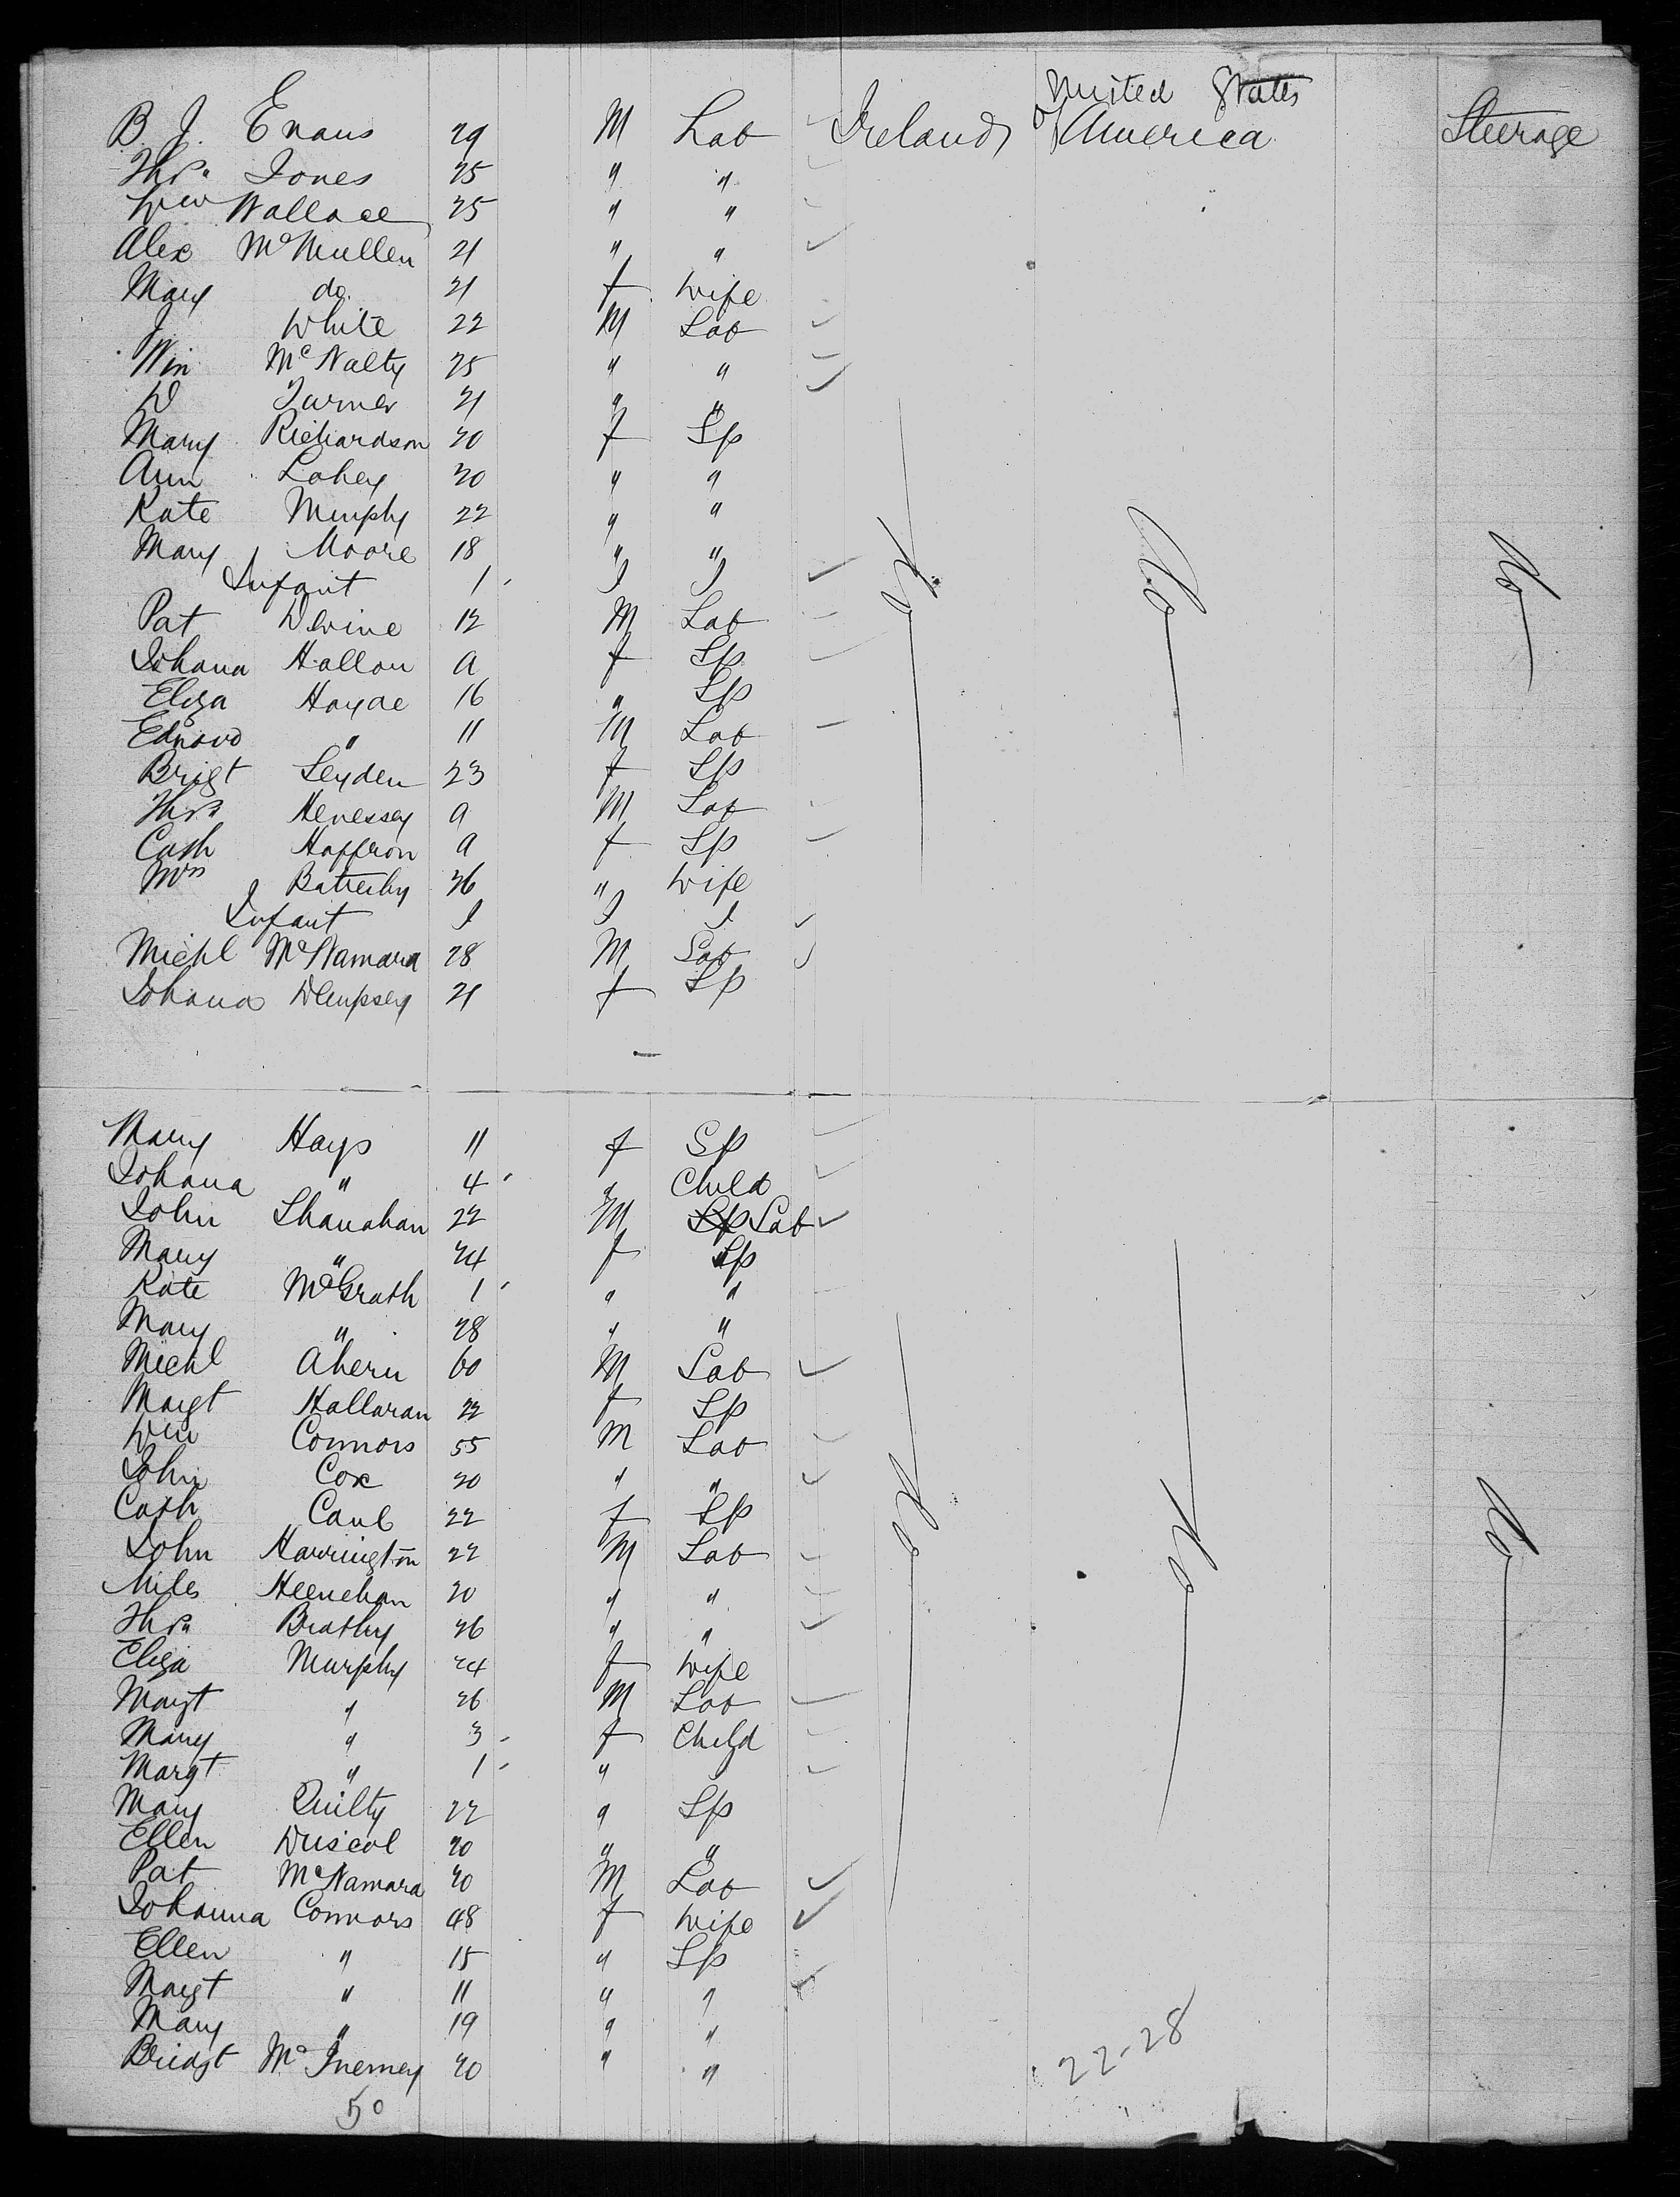 United States
B. J. Evans 29 M Lab Ireland of America Steerage
Thos Jones 25 " "
Wm Wallace 25 " "
Alex McMullen 21 " "
Mary do 21 f Wife
J White 22 M Lab
Wm McNalty 25 " "
D Turner 21 " "
Mary Richardson 20 f Sp
Ann Lahey 20 " "
Kate Murphy 22 " "
Mary Moore 18 " "
Infant 1 I I
Pat Devine 12 M Lab
Johana Hallon a f Sp
Eliza Hayde 16 " Sp
Edward " 11 M Lab
Brigt Leyden 23 f Sp
Thos Henessey a M Lab
Cath Haffron a f Sp
Mrs Batterby 26 " Wife
Infant I I I
Michl McNamara 28 M Lab
Johana Dempsey 21 f Sp
Do Do Do
Mary Hays 11 f Sp
Johana " 4 " Child
John Shanahan 22 M Sp Lab
Mary " 24 f Sp
Kate McGrath 1 " "
Mary " 28 " "
Michl Ahern 60 M Lab
Margt Hallaran 22 f Sp
Wm Connors 55 M Lab
John Cox 20 " "
Cath Caul 22 f Sp
John Harrington 22 M Lab
Miles Heenehan 20 " "
Thos 26 " "
Eliza Murphy 24 f Wife
Margt " 26 M Lab
Mary " 3 f Child
Margt " 1 "
Mary Quilty 22 " Sp
Ellen Driscol 20 " "
Pat McNamara 20 M Lab
Johanna Connors 48 f Wife
Ellen " 15 " Sp
Margt " 11 " "
Mary " 19 " "
Bridgt McInerney 20 " "
Do Do Do
50
22-28